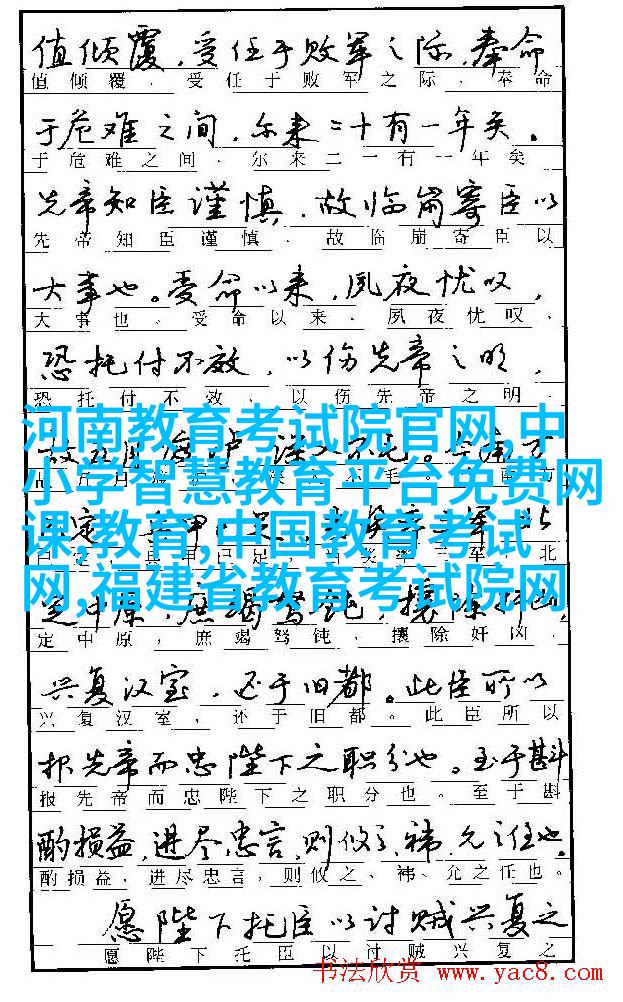 值倾覆,受任于败军之际,奉命
值倾覆,受任于败军之际,奉命
于危难之间,尔来二十有一年矣。
于危难之间,尔来二一有一年矣
先帝知臣谨慎,故临崩寄臣以
先帝知臣谨慎,故临崩寄臣以
大事也。受命以来,夙夜忧叹,
大事也。受命以来,夙夜忧叹,
恐托付不效,以伤先帝之明,
恐托付不效,以伤先帝之明,
河南教育考试院官网,中
小学智慧教育平台免费网
课,教育,中国教育考试
网,福建省教育考试院网
定中原,庶竭驽钝,攘除奸凶,
定中原,庶竭驽钝,攘除奸凶,
兴复汉室,还于旧都。此臣所以
兴复汉室,还于旧都。此臣所以
报先帝而忠陛下之职分也。至于斟
报先帝而忠陛下之职分也。至于斟
酌损益,进尽忠言,则攸之、祎、允之任也。
酌损益,进尽忠言,则攸之、祎、允之任也。
愿陛下托臣以讨贼兴复之
愿陛下托臣以讨贼兴复之
书法欣赏 www.yac8.com